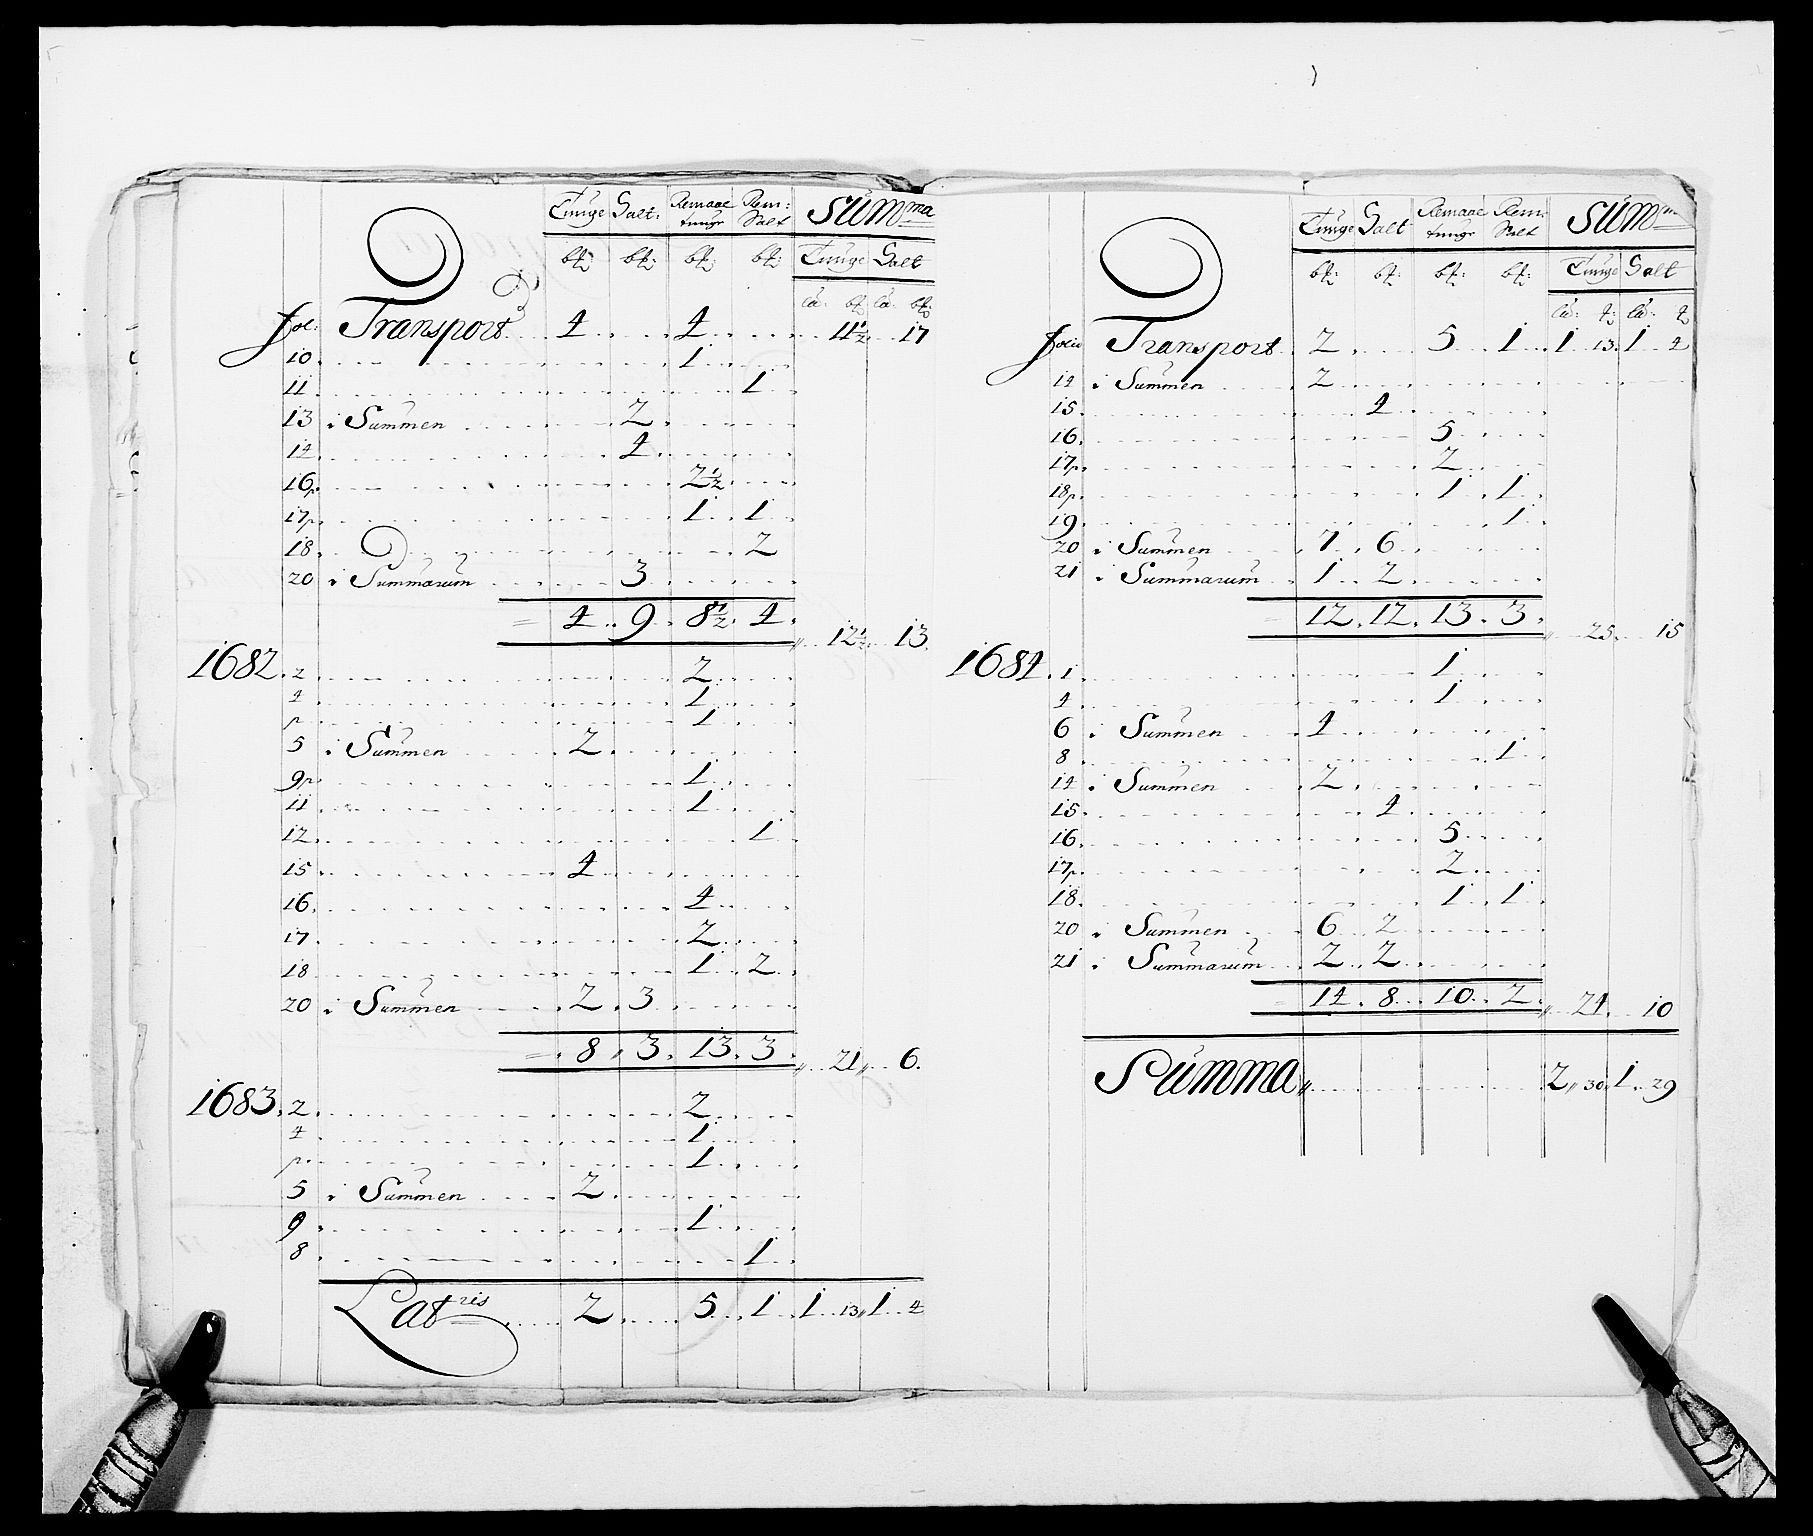 Tunge Salt: Remaae tunge Rem: Salt SUMma
Tunge Salt
fol: Transport 4 4 11½ 17
10 1
11 1
13 i Summen 2
14 4
16 2½
17 1 1
18 2
20 i Summarum 3
4 9 8½ 4
12½ 13
1682. 2 2
4 1
1
5 i Summen 2
9 1
11 1
12 1
15 4
16 4
17 2
18 1 2
20 i Summen 2 3
8 3 13 3
21 6
1683. 2 2
4 1
1
5 i Summen 2
9 1
8 1
Latris 2 5 1 1 13 1 4
Tunge Salt Remaae tunge Rem: Salt SUM
Tunge Salt
folio Transport 2 5 1 1 13 1 4
14 i Summen 2
15 4
16 5
17 2
18 1 1
19 1
20 i Summen 7 6
21 i Summarum 1 2
12 12 13 3
25 15
1684. 1 1
4 1
6 i Summen 4
8 1
14 i Summen 2
15 4
16 5
17 2
18 1 1
20 i Summen 6 2
21 i Summarum 2 2
14 8 10 2 24 10
Summa 2 30 1 29